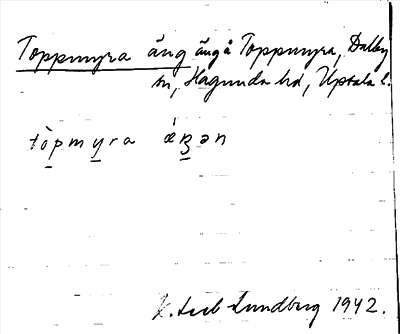 Toppmyra äng ängå Toppmyra, Dalby
sn, Hagunda hd, Uppsala l.
tòpmyra ǽŋən
Lundberg 1942.